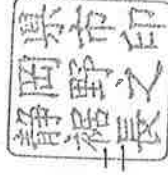 静岡県
裾野市
長之印